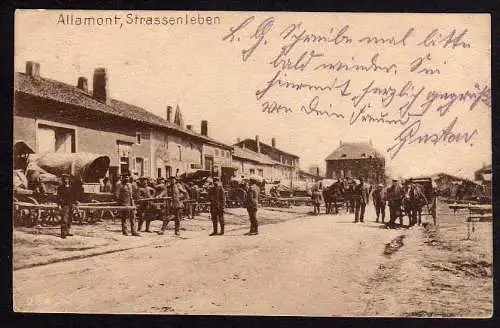 Allamont, Strassenleben
L. G. Schreibe mal bitte
bald wieder. Sei
hiermit herzlich gegrüßt
von Dein Freund
Gustav.